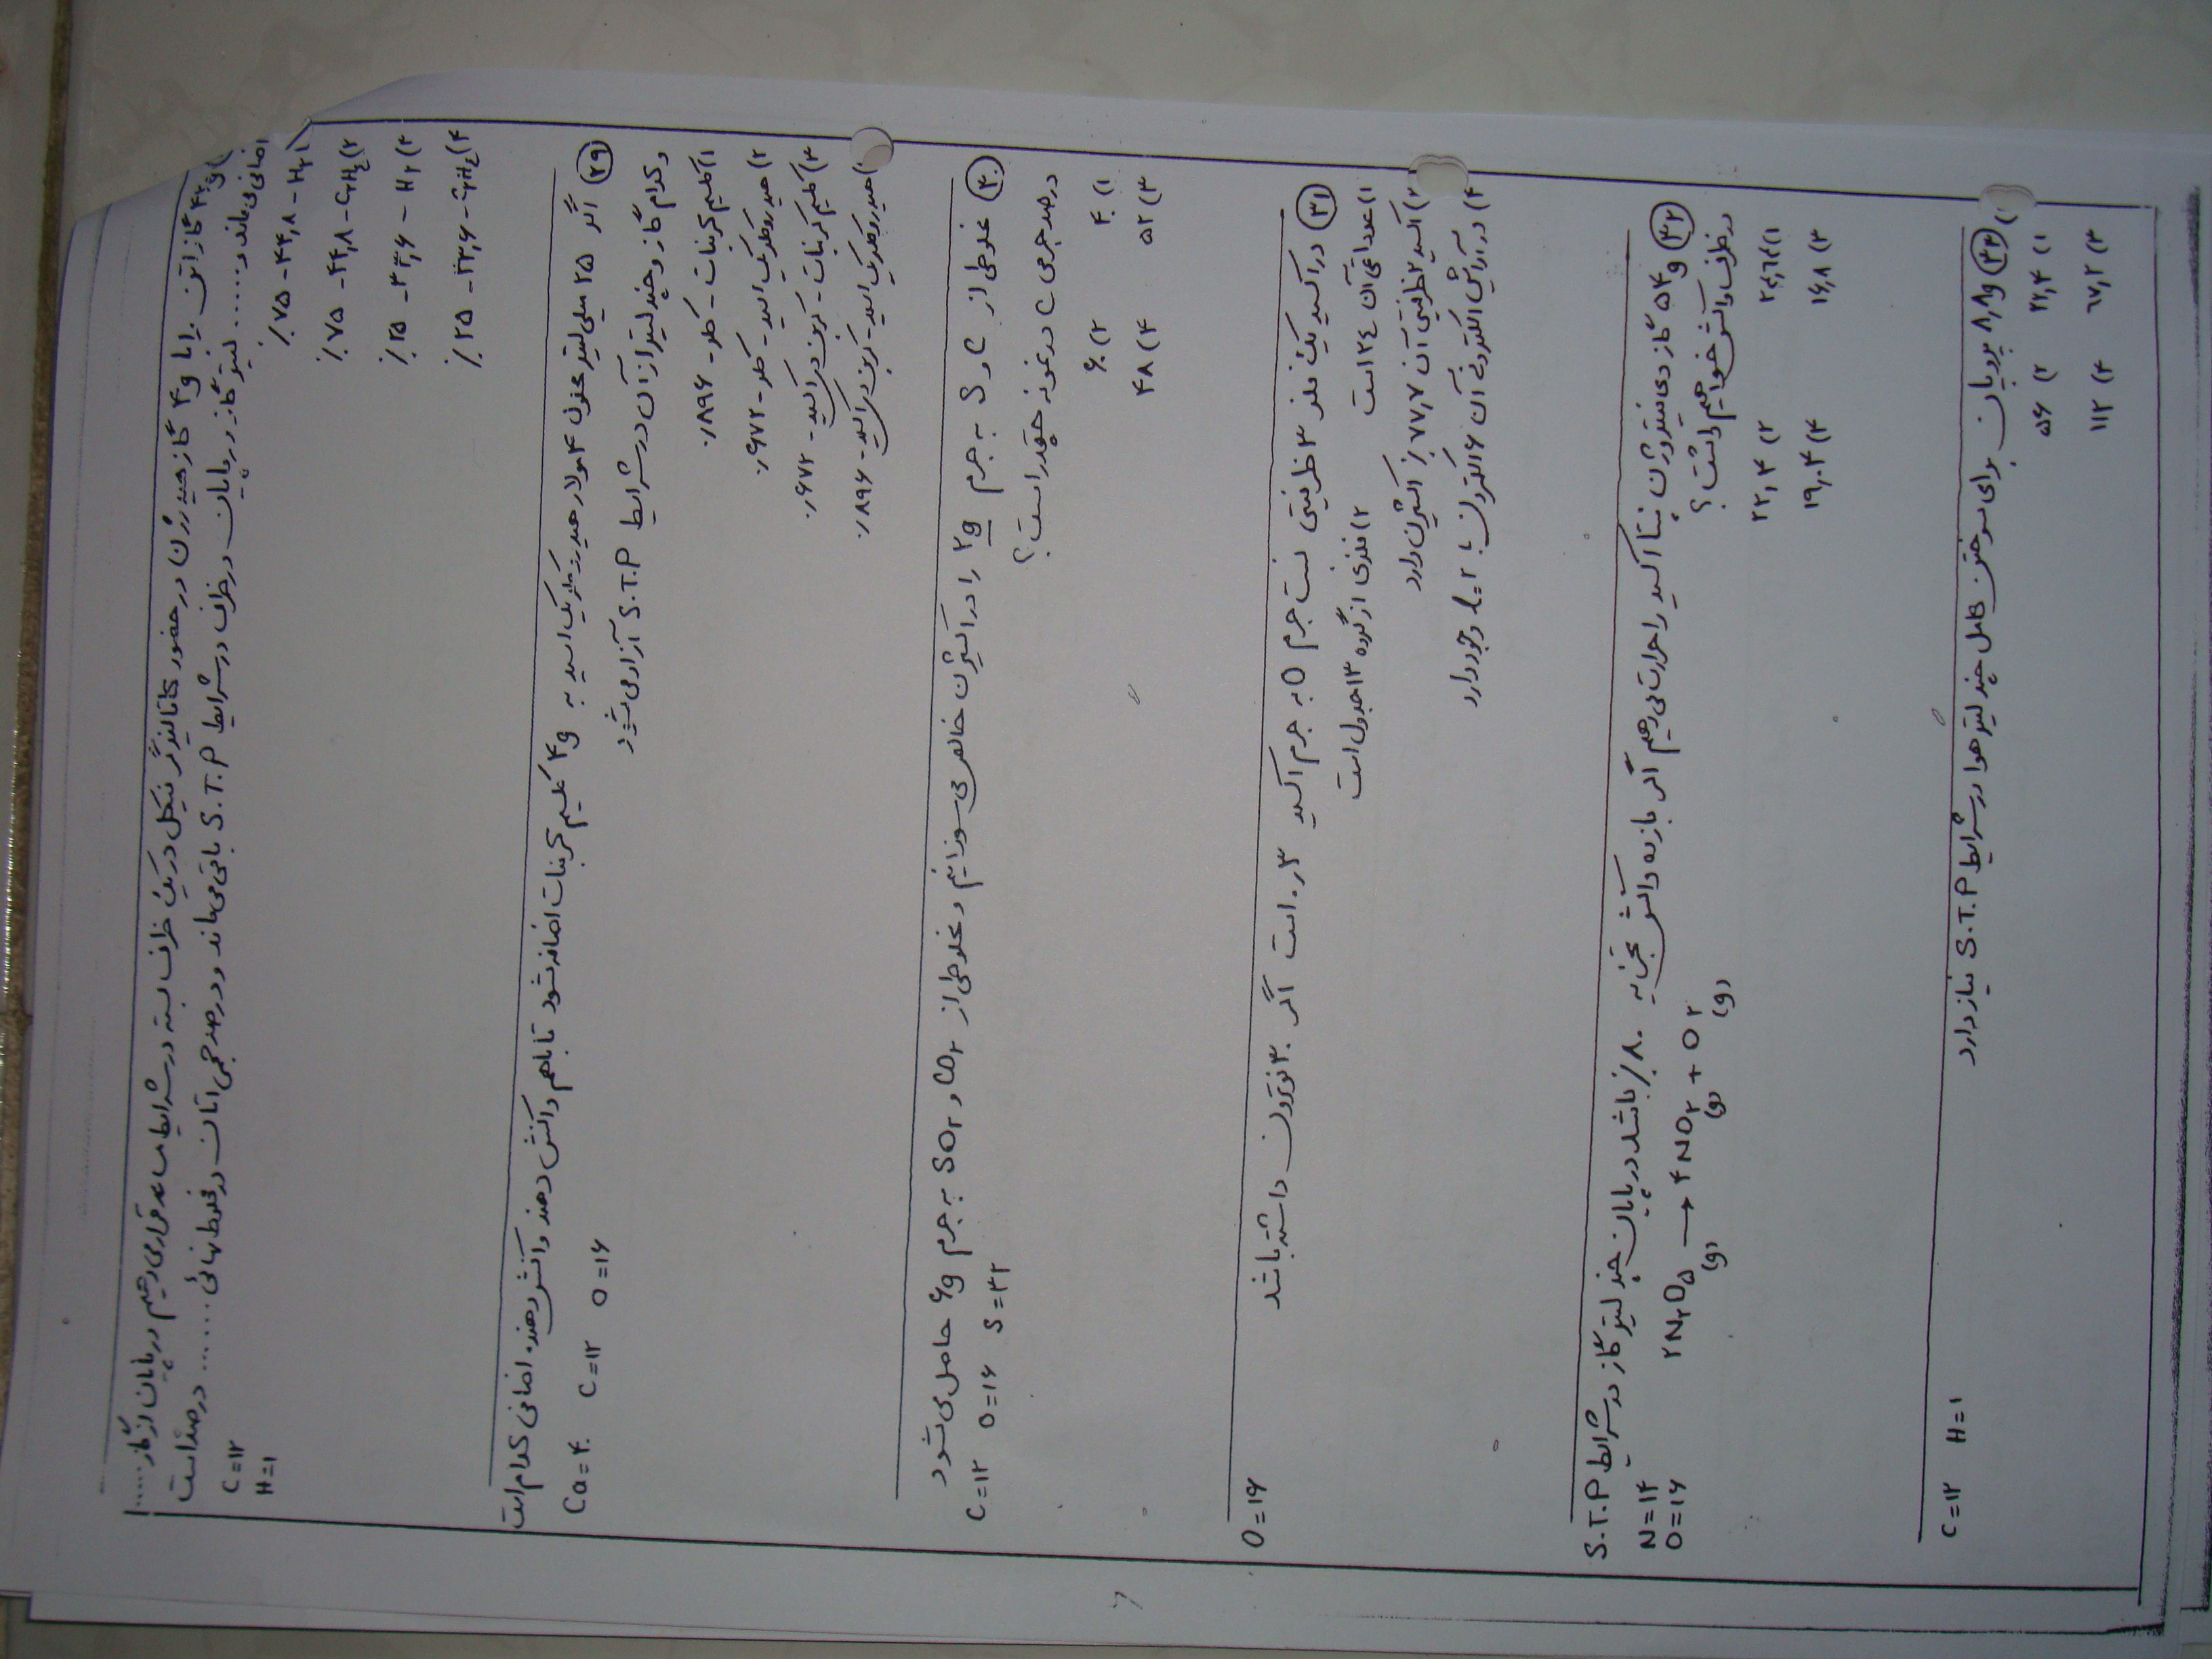 گاز اتن را با 4g گاز هیدروژن در حضور کاتالیزگر نیکل در یک ظرف بسته در شرایط مساعد قرار می دهیم در پایان از گاز .....
اضافی می ماند و ...... لیتر گاز در پایان در ظرف در شرایط S.T.P باقی می ماند و درصد حجمی اتان در مخلوط نهائی ...... درصد است
C=۱۲
H=۱
H۲ - ۴۴,۸ - ٪۷۵
۲) C۲H٤ - ۴۴,۸ - ٪۷۵
۳) H۲ - ۳۳,۶ - ٪۲۵
۴) C۲H٤ - ۳۳,۶ - ٪۲۵
۲۹) اگر ۲۵ میلی لیتر محلول ۴ مولار هیدروکلریک اسید به 4g کلسیم کربنات اضافه شود تا باهم واکنش دهند واکنش دهنده اضافی کدام است
و کدام گاز و چند لیتر از آن در شرایط S.T.P آزاد می شود
Ca=۴۰ C=۱۲ O=۱۶
۱) کلسیم کربنات - کلر - ۰/۸۹۶
۲) هیدروکلریک اسید - کلر - ۰/۶۷۲
۳) کلسیم کربنات - کربن دی اکسید - ۰/۶۷۲
هیدروکلریک اسید - کربن دی اکسید - ۰/۸۹۶
۳۰) مخلوطی از C و S به جرم 2g را در اکسیژن خالص می سوزانیم و مخلوطی از CO۲ و SO۲ به جرم 6g حاصل می شود
درصد جرمی C در نمونه چقدر است؟
C=۱۲ O=۱۶ S=۳۲
۱) ۴۰ ۲) ۶۰
۳) ۵۲ ۴) ۴۸
۳۱) در اکسید یک فلز ۳ ظرفیتی نسبت جرم O به جرم اکسید ۰/۳ است اگر ۳۰ نوترون داشته باشد
O=۱۶
۱) عدد اتمی آن ۲٤ است ۲) فلزی از گروه ۱۳ جدول است
۳) اکسید ۲ ظرفیتی آن ۷۷,۷٪ اکسیژن دارد
۴) در آرایش الکترونی آن ۶ الکترون با l=۲ وجود دارد
۳۲) 54g گاز دی نیتروژن پنتا اکسید را حرارت می دهیم اگر بازده واکنش تجزیه ۸۰٪ باشد در پایان چند لیتر گاز در شرایط S.T.P
در ظرف واکنش خواهیم داشت؟
۲N۲O۵ (g) → ۴NO۲ (g) + O۲ (g)
N=۱۴
O=۱۶
۱) ۲۴,۶٤ ۲) ۲۲,۴
۳) ۱۶,۸ ۴) ۱۹,۰۴
۳۳) 8,8g پروپان برای سوختن کامل چند لیتر هوا در شرایط S.T.P نیاز دارد
C=۱۲ H=۱
۱) ۲۲,۴ ۲) ۵۶
۳) ۶۷,۲ ۴) ۱۱۲